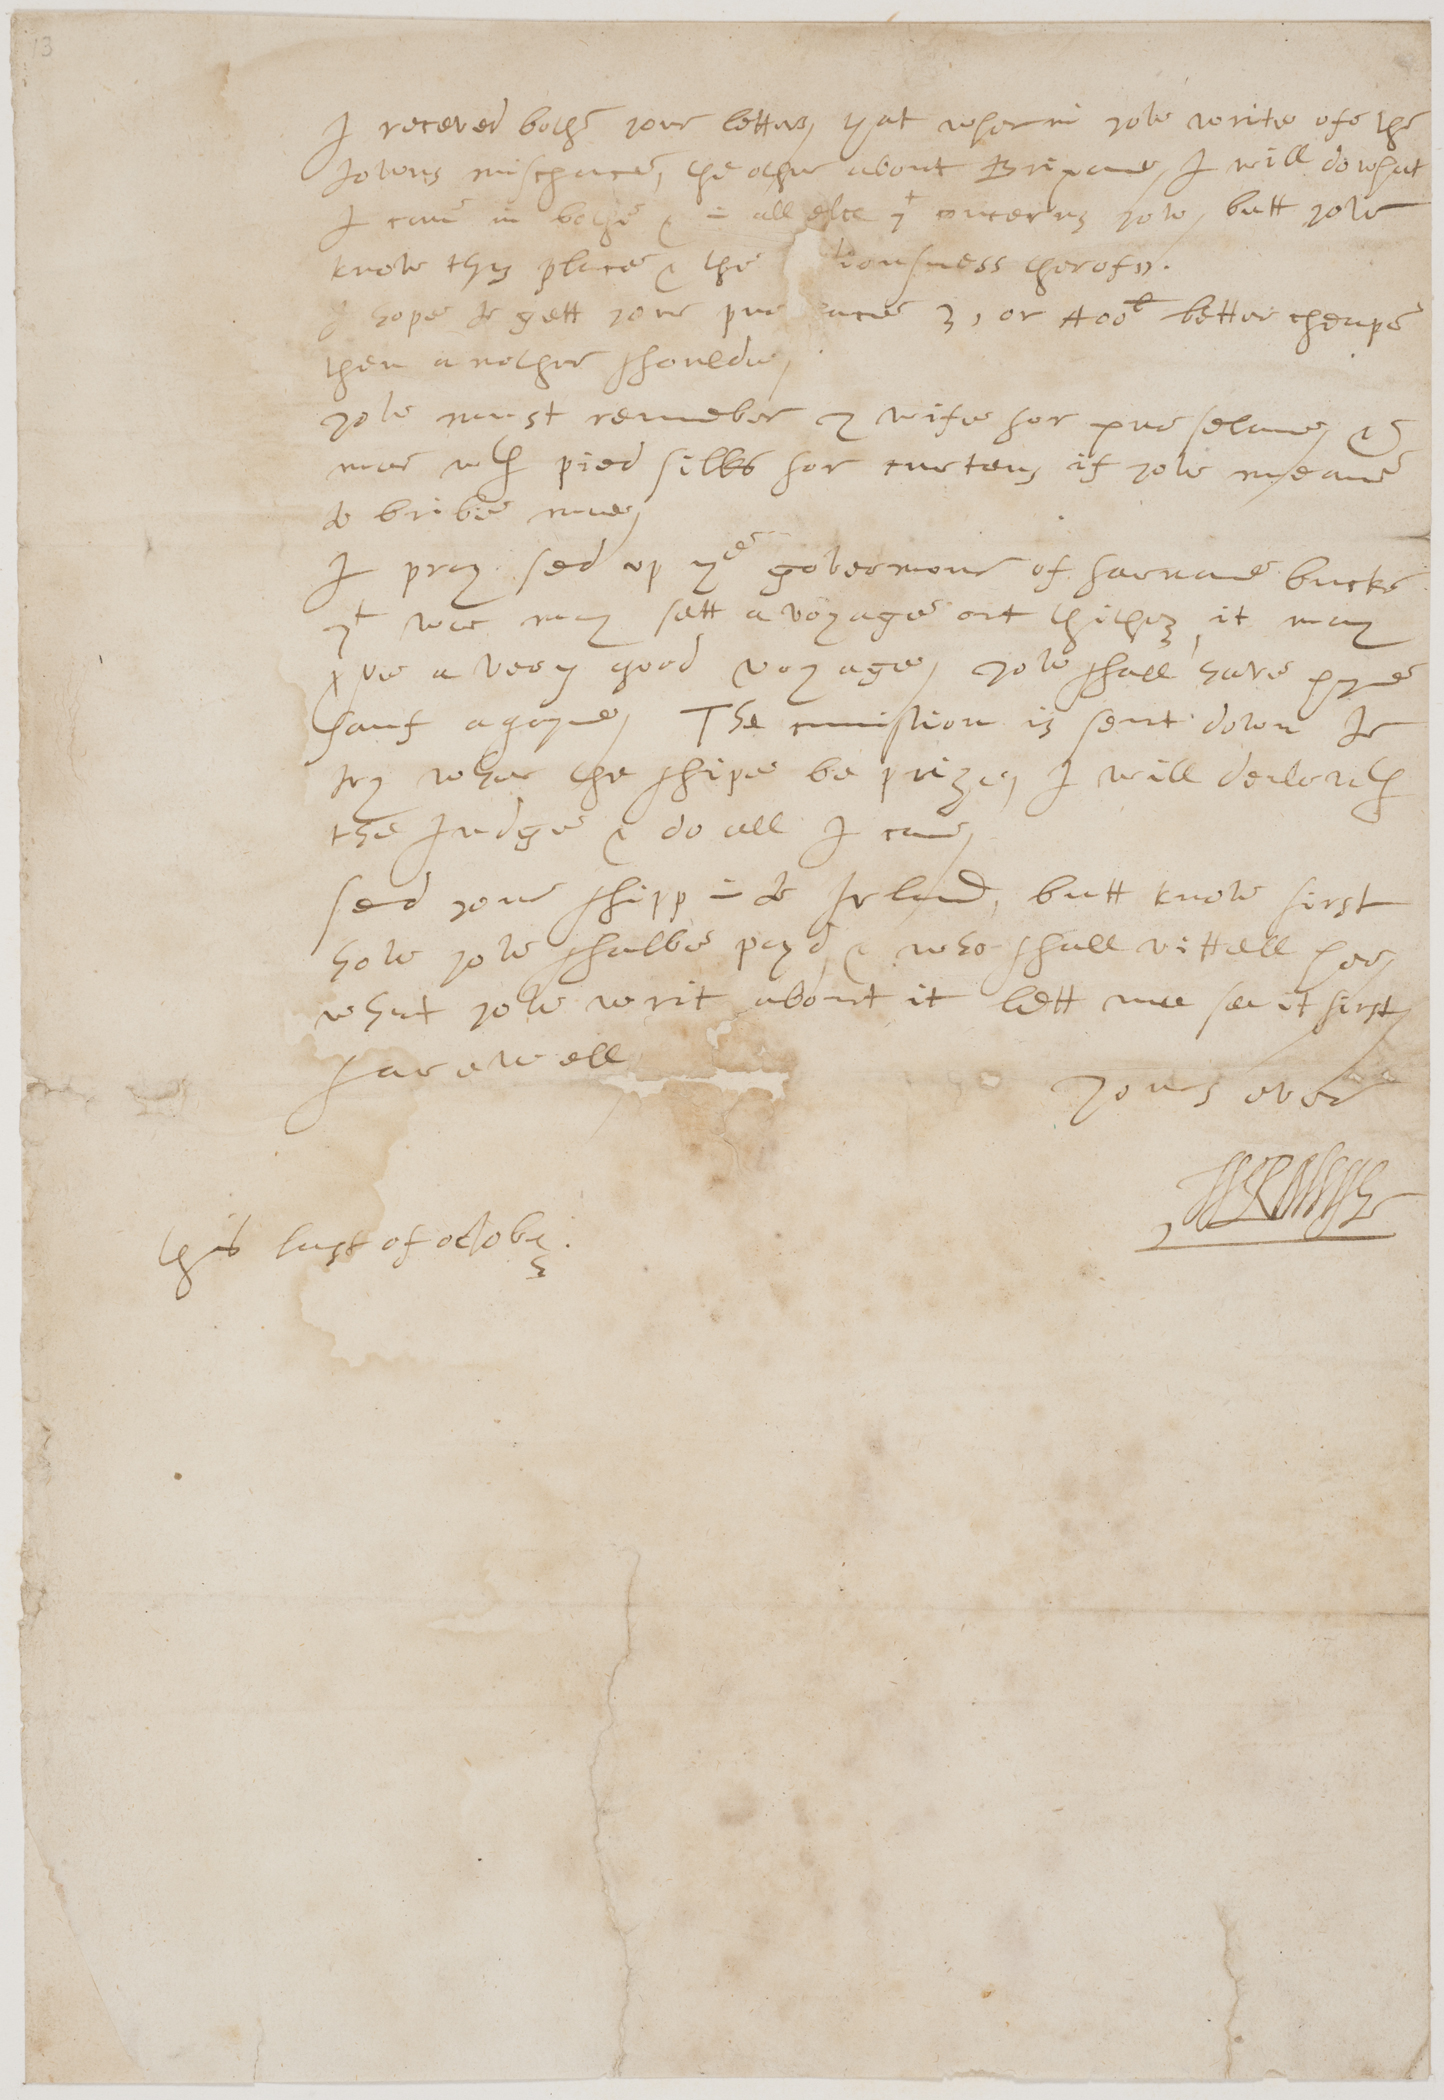 13
I receved bothe your letters, yat wherin yow write ofe the
towns mischance, the other about Brixame, I will do what
I cane in bothe & in all else yt concerns yow, butt yow
know thys place & the tiousness therofe.
I hope to gett your 3, or 400l better cheape
then another shoulde,
yow must remeber yr wife for purselane, &
mee wth pied silks for curtens if yow meane
to bribe mee,
I pray sed up ye governour of farname bucke
yt wee may sett a voyage out thither, it may
prve a very good voyage, yow shall have hyme
sauf agayne, The cumistion is sent down to
try wher the shipe be prize, I will deale wth
the Judge & do all I cane,
send your shipp into Irland, butt know first
how yow shalbe payd & who shall vittell her,
what yow writ about it lett mee see it first,
farewell
yours ever
WRalegh
this last of october.